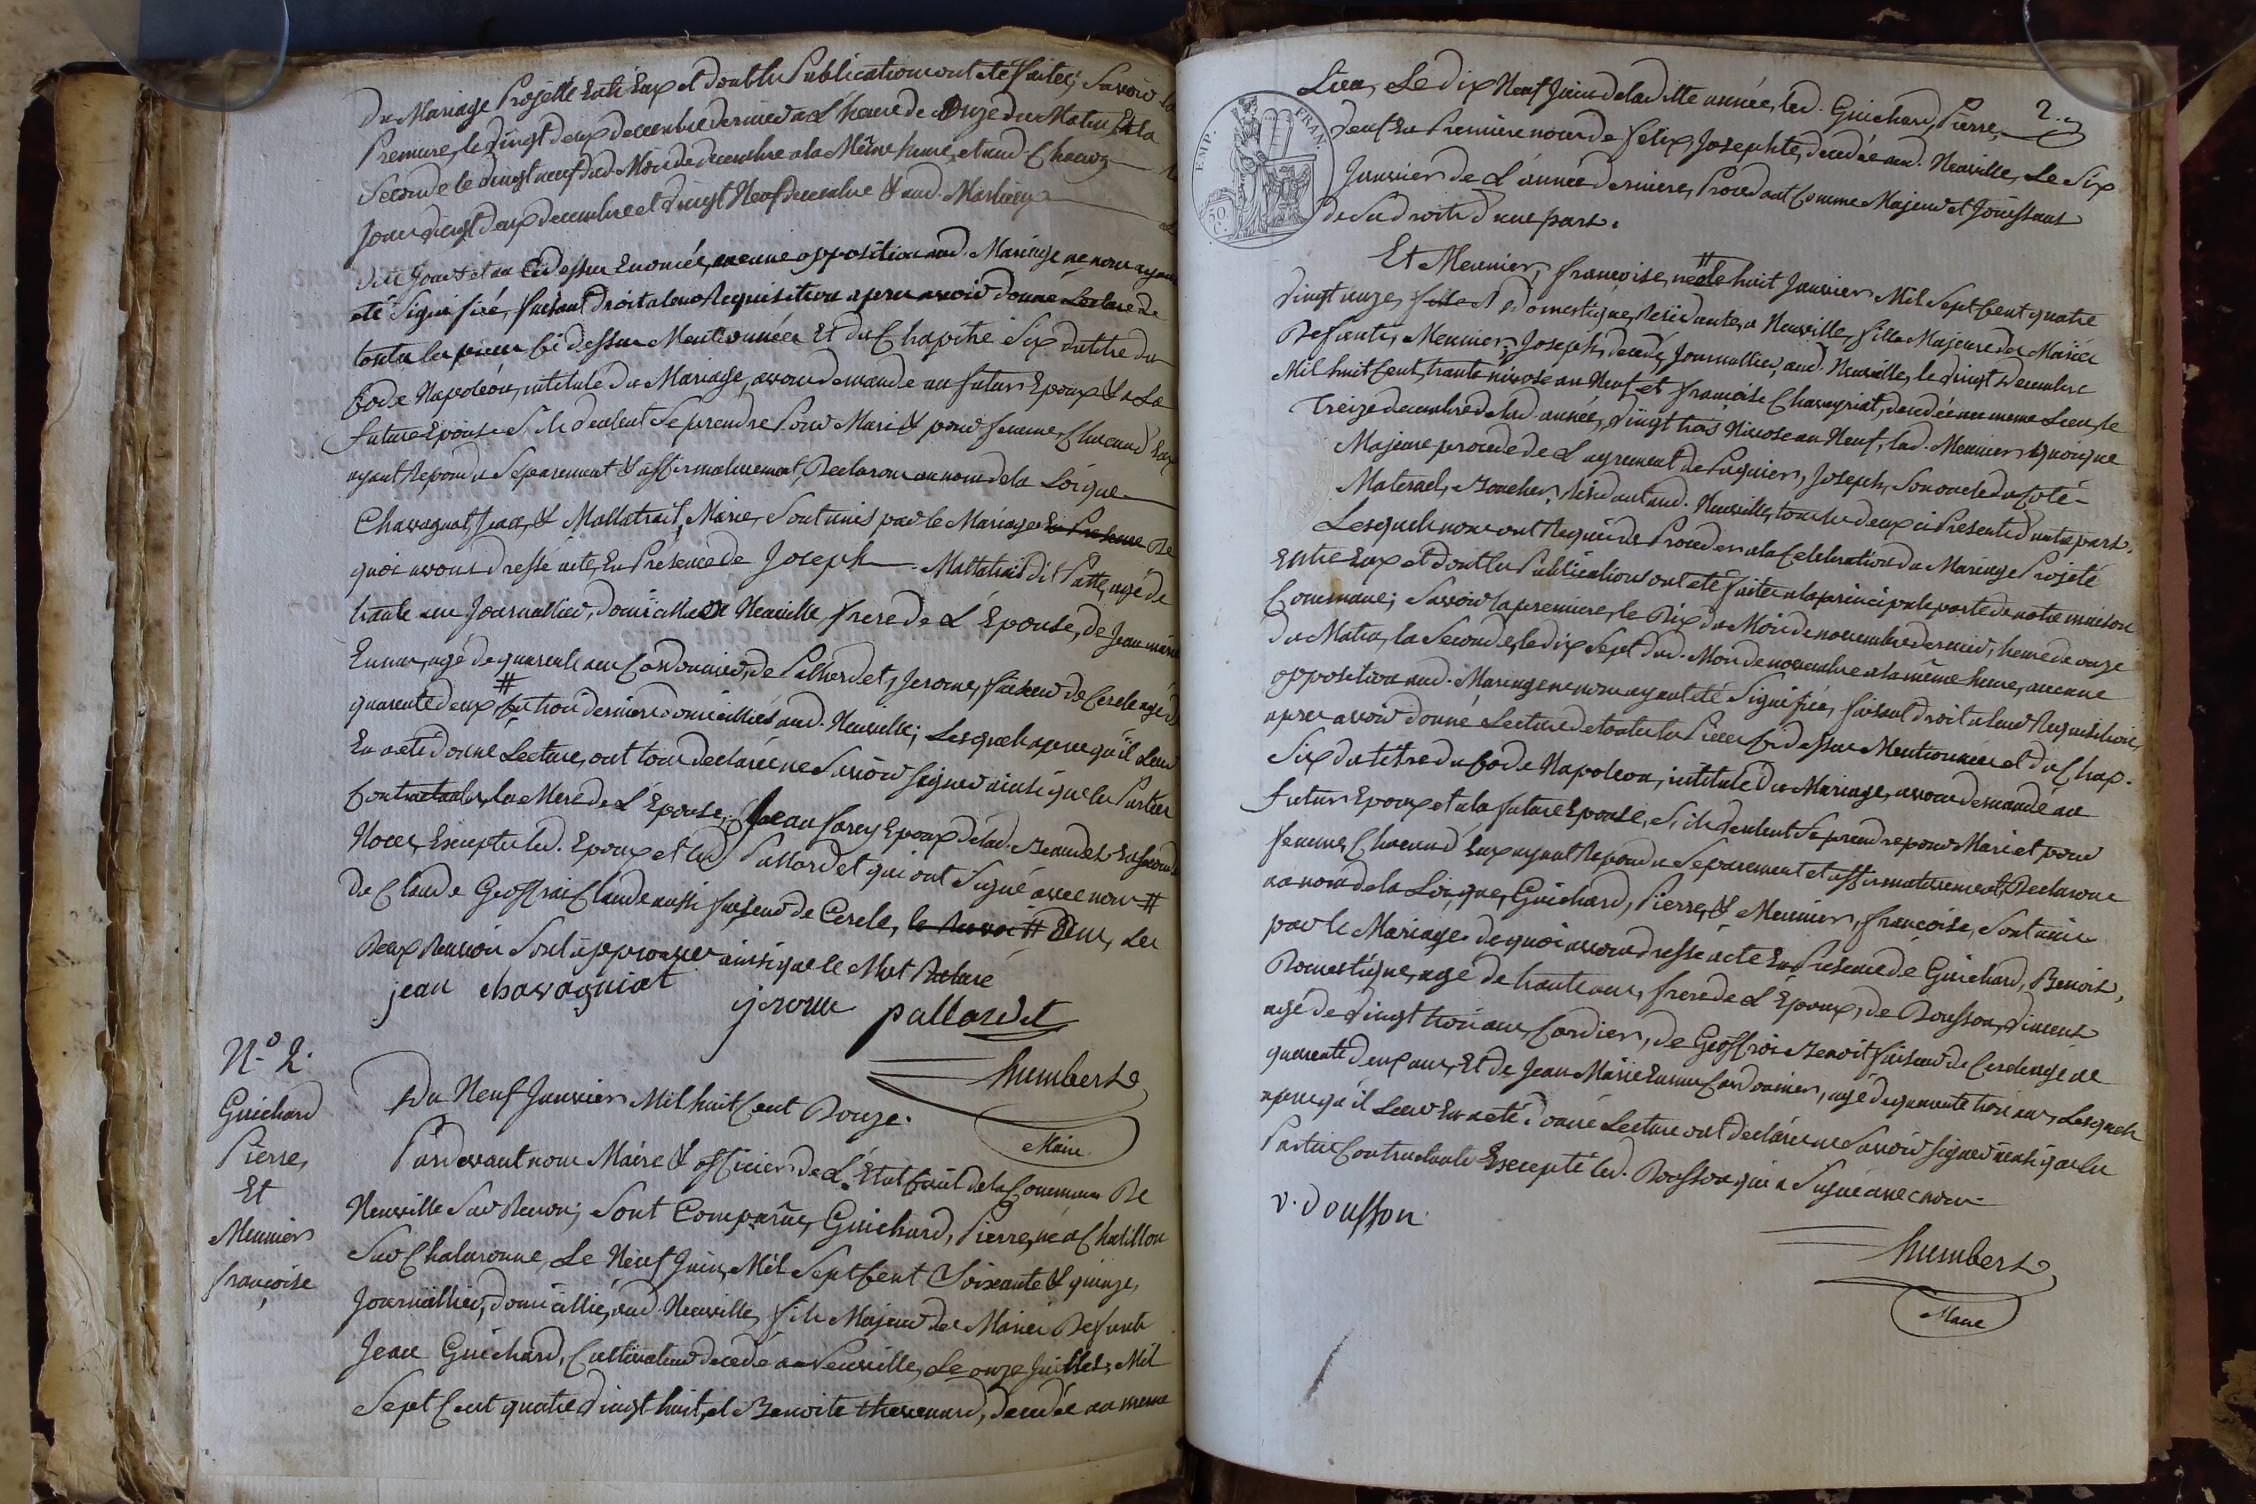 Du Mariage Projetté Entr'Eux et dont les Publications ont été faites; Savoir la
Premiere, le vingt deux decembre dernier a L'heure de Onze du Matin Et la
Seconde le vingt neuf dud. Mois de decembre a la Même heure, et aud.
Jour vingt deux decembre et vingt Neuf decembre & aud.
dits Jours et an Cidessus Enoncés, aucune opposition aud. Mariage ne nous ayant
été Signifiée, faisant droit a leur Requisition apres avoir donné Lecture de
toutes les pieces Ci dessus Mentionnées Et du Chapitre Six du titre du
Code Napoléon, intitulé du Mariage, avons demandé au futur Epoux & a La
future Epouse S'ils veulent Se prendre Pour Mari & pour femme, Chacun d'Eux
ayant Repondu Séparement & affirmativement, Declarons au nom de la Loi que
Chavagniat, Jean, & Mallatrait, Marie, Sont unis par le Mariage De
quoi avons dressé acte, En Présence de Joseph Mallatrait dit Patte, agé de
trente ans Journallier, domicillié a Neuville, frere de L'Epouse, de Jean marie
Eunuc, agé de quarente ans Cordonnier, de Pallordet, Jerome, faiseur de Cercle agé de
quarente deux, # les trois derniers domicilliés aud. Neuville; Lesquels apres qu'il Leur
En a été donné Lecture, ont tous declarés ne Savoir Signer ainsi que les Parties
Contractantes, la Mere de L'Epouse, Jean farey Epoux de lad. en secondes
Noces, Excepté led. Epoux et led. Pallordet qui ont Signé avec nous #
De Claude Geoffrai Claude aussi faiseur de Cercle, le Renvoi # Les
Deux Renvois Sont approuvés ainsi que le Mot Raturé
jean chavagniat jerome pallordet
humbert
Maire
N.° 2.
Guichard
Pierre,
Et
Meunier
françoise
Du Neuf Janvier Mil huit Cent Douze.
Pardevant nous Maire & officier de L'Etat Civil de la Commune De
Neuville Sur Renon; Sont Comparus, Guichard, Pierre, né a Chatillon
Sur Chalaronne, Le Neuf Juin, Mil Sept Cent Soixante & quinze,
Journallier, domicillié, aud. Neuville, fils Majeur des Mariés Defunts
Jean Guichard, Cultivateur decedé a Neuville, Le onze Juillet, Mil
Sept Cent quatre vingt huit, et Benoite thevenard, decedée au meme
2.
EMP. FRAN.
50 C.
Lieu, Le dix Neuf Juin de laditte année, led. Guichard, Pierre,
veuf En Premiere noces de felix, Josephte, decedée aud. Neuville, Le Six
Janvier de L'année derniere, Procedant Comme Majeur et Jouissant
de Ses droits d'une part.
Et Meunier, françoise, née le huit Janvier Mil Sept Cent quatre
vingt onze, Domestique, Residante, a Neuville, fille Majeure des Mariés
Defunts, Meunier, Joseph, decedé Journallier, aud. Neuville, le vingt decembre
Mil huit Cent, trente nivose an Neuf et françoise Chavagniat, decedée au meme Lieu, le
Treize decembre de lad. année, vingt trois Nivose an Neuf, lad. Meunier quoique
Majeure procede de L'agrement de Paquier, Joseph, Son oncle du Coté
Maternel, Boucher, Residant aud. Neuville, tous les deux ci Presents d'autre part.
Lesquels nous ont Requis de Proceder a la Celebration du Mariage Projeté
Entre Eux et dont les Publications ont été faites a la principale porte de notre maison
Commune; Savoir la premiere, le Dix du Mois de novembre dernier, heure de onze
du Matin, la Seconde, le dix Sept dud. Mois de novembre a la même heure, aucune
opposition aud. Mariage ne nous ayant été Signifiée, faisant droit a leur Requisition,
apres avoir donné Lecture de toutes les Pieces Ci dessus Mentionnées et du Chap.
Six du titre du Code Napoleon, intitulé Du Mariage, avons demandé au
futur Epoux et a la future Epouse, S'ils veulent Se prendre pour Mari et pour
femme, Chacun d'Eux ayant Repondu Separement et affirmativement, Declarons
au nom de la Loi que, Guichard, Pierre, & Meunier, françoise, Sont unis
par le Mariage. de quoi avons dressé acte En Presence de Guichard, Benoit,
Domestique, agé de trente ans, frere de L'Epoux, de Dousson, Vincent
agé de vingt trois ans, Cordier, de Geoffroi Benoit faiseur de Cercle agé de
quarente deux ans, Et de Jean Marie Eunuc Cordonnier, agé de quarente trois ans, Lesquels
apres qu'il Leur En a été donné Lecture ont declarés ne Savoir Signer ainsi que les
Parties Contractantes Excepté led. Dousson qui a Signé avec nous.
v. dousson
humbert
Maire